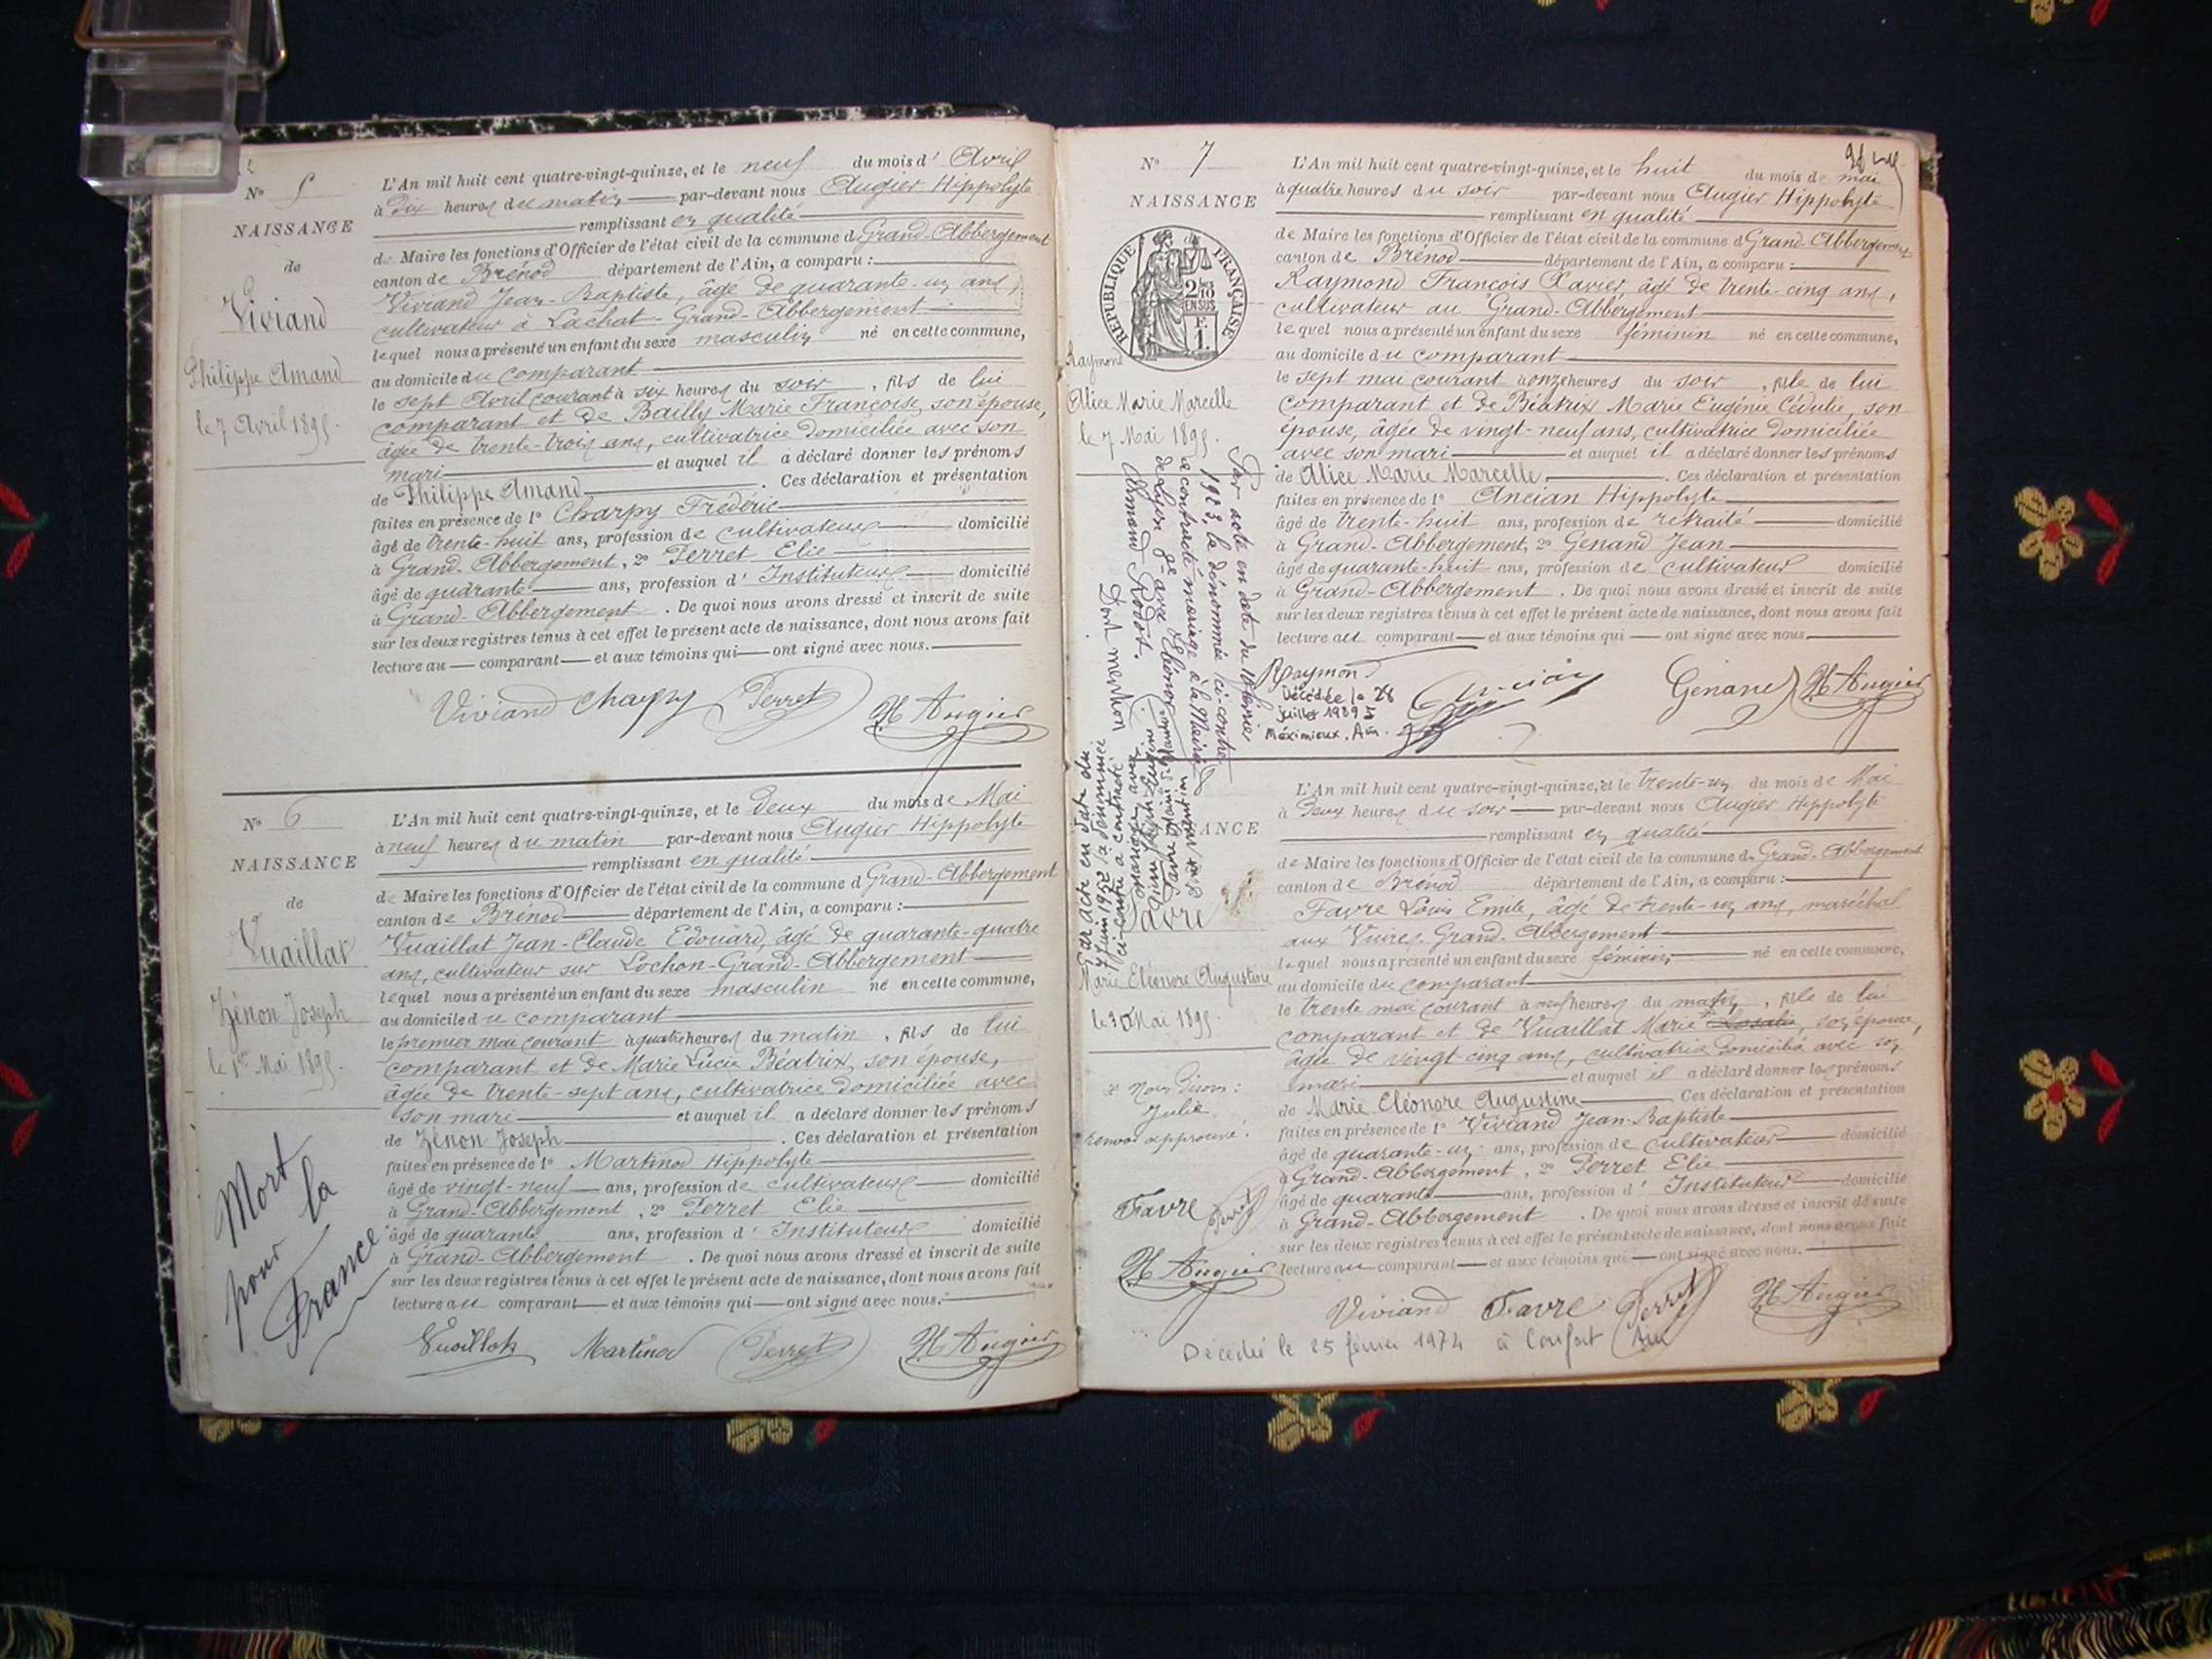 N° 5
NAISSANCE
de
Viviand
Philippe Amand
le 7 Avril 1895.
L'An mil huit cent quatre-vingt-quinze, et le neuf du mois d' Avril
à Dix heures du matin par-devant nous Augier Hippolyte
remplissant en qualité
de Maire les fonctions d'Officier de l'état civil de la commune de Grand-Abbergement
canton de Brénod département de l'Ain, a comparu :
Viviand Jean-Baptiste, âgé de quarante-un ans,
cultivateur à Lachat-Grand-Abbergement
lequel nous a présenté un enfant du sexe masculin né en cette commune,
au domicile du comparant
le sept Avril courant à six heures du soir, fils de lui
comparant et de Bailly Marie Françoise, son épouse,
âgée de trente-trois ans, cultivatrice domiciliée avec son
mari et auquel il a déclaré donner les prénoms
de Philippe Amand. Ces déclaration et présentation
faites en présence de 1° Charpy Frédéric
âgé de trente-huit ans, profession de cultivateur domicilié
à Grand-Abbergement, 2° Perret Elie
âgé de quarante ans, profession d' Instituteur domicilié
à Grand-Abbergement. De quoi nous avons dressé et inscrit de suite
sur les deux registres tenus à cet effet le présent acte de naissance, dont nous avons fait
lecture au comparant et aux témoins qui ont signé avec nous.
Viviand Charpy Perret H Augier
N° 6
NAISSANCE
de
Vuaillat
Zénon Joseph
le 1er Mai 1895.
Mort
pour la
France
L'An mil huit cent quatre-vingt-quinze, et le Deux du mois de Mai
à neuf heures du matin par-devant nous Augier Hippolyte
remplissant en qualité
de Maire les fonctions d'Officier de l'état civil de la commune d Grand-Abbergement
canton de Brénod département de l'Ain, a comparu :
Vuaillat Jean-Claude Edouard, âgé de quarante-quatre
ans, cultivateur sur Lochon-Grand-Abbergement
lequel nous a présenté un enfant du sexe masculin né en cette commune,
au domicile du comparant
le premier mai courant à quatre heures du matin, fils de lui
comparant et de Marie Lucie Béatrix, son épouse,
âgée de trente-sept ans, cultivatrice domiciliée avec
son mari et auquel il a déclaré donner les prénoms
de Zénon Joseph. Ces déclaration et présentation
faites en présence de 1° Martinod Hippolyte
âgé de vingt-neuf ans, profession de cultivateur domicilié
à Grand-Abbergement, 2° Perret Elie
âgé de quarante ans, profession d' Instituteur domicilié
à Grand-Abbergement. De quoi nous avons dressé et inscrit de suite
sur les deux registres tenus à cet effet le présent acte de naissance, dont nous avons fait
lecture au comparant et aux témoins qui ont signé avec nous.
Vuaillat Martinod Perret H Augier
N° 7
NAISSANCE
de
RÉPUBLIQUE FRANÇAISE
2/10
EN SUS
F.
1.
Raymond
Alice Marie Marcelle
le 7 Mai 1895.
L'An mil huit cent quatre-vingt-quinze, et le huit du mois de mai
à quatre heures du soir par-devant nous Augier Hippolyte
remplissant en qualité
de Maire les fonctions d'Officier de l'état civil de la commune d Grand-Abbergement
canton de Brénod département de l'Ain, a comparu :
Raymond François Xavier, âgé de trente-cinq ans,
cultivateur au Grand-Abbergement
lequel nous a présenté un enfant du sexe féminin né en cette commune,
au domicile du comparant
le sept mai courant à onze heures du soir, fille de lui
comparant et de Béatrix Marie Eugénie Cédulie, son
épouse, âgée de vingt-neuf ans, cultivatrice domiciliée
avec son mari et auquel il a déclaré donner les prénoms
de Alice Marie Marcelle. Ces déclaration et présentation
faites en présence de 1° Ancian Hippolyte
âgé de trente-huit ans, profession de retraité domicilié
à Grand-Abbergement, 2° Genand Jean
âgé de quarante-huit ans, profession de cultivateur domicilié
à Grand-Abbergement. De quoi nous avons dressé et inscrit de suite
sur les deux registres tenus à cet effet le présent acte de naissance, dont nous avons fait
lecture au comparant et aux témoins qui ont signé avec nous
Par acte en date du 10 février
1923, la dénommée ci-contre
a contracté mariage à la Mairie
de Lyon avec
Armand Rodot.
Dont mention
Raymond Ancian Genand H Augier
Décédée le 28
juillet 1989
Méximieux. Ain.
NAISSANCE
Favre
Marie Eléonore Augustine
le 30 Mai 1895.
Par acte en date du
7 Juin 1952 la dénommée
ci-contre a contracté
mariage avec
mention
Nous disons :
Julie
renvoi approuvé.
Favre Perret
H Augier
L'An mil huit cent quatre-vingt-quinze, et le trente-un du mois de Mai
à Deux heures du soir par-devant nous Augier Hippolyte
remplissant en qualité
de Maire les fonctions d'Officier de l'état civil de la commune de Grand-Abbergement
canton de Brénod département de l'Ain, a comparu :
Favre Louis Emile, âgé de trente-un ans, maréchal
aux Vuires-Grand-Abbergement
lequel nous a présenté un enfant du sexe féminin né en cette commune,
au domicile du comparant
le trente mai courant à neuf heures du matin, fille de lui
comparant et de Vuaillat Marie Rosalie, son épouse,
âgée de vingt-cinq ans, cultivatrice domiciliée avec son
mari et auquel il a déclaré donner les prénoms
de Marie Eléonore Augustine Ces déclaration et présentation
faites en présence de 1° Viviand Jean-Baptiste
âgé de quarante-un ans, profession de cultivateur domicilié
à Grand-Abbergement, 2° Perret Elie
âgé de quarante ans, profession d' Instituteur domicilié
à Grand-Abbergement. De quoi nous avons dressé et inscrit de suite
sur les deux registres tenus à cet effet le présent acte de naissance, dont nous avons fait
lecture au comparant et aux témoins qui ont signé avec nous.
Viviand Favre Perret H Augier
Décédée le 25 février 1974 à Confort Ain